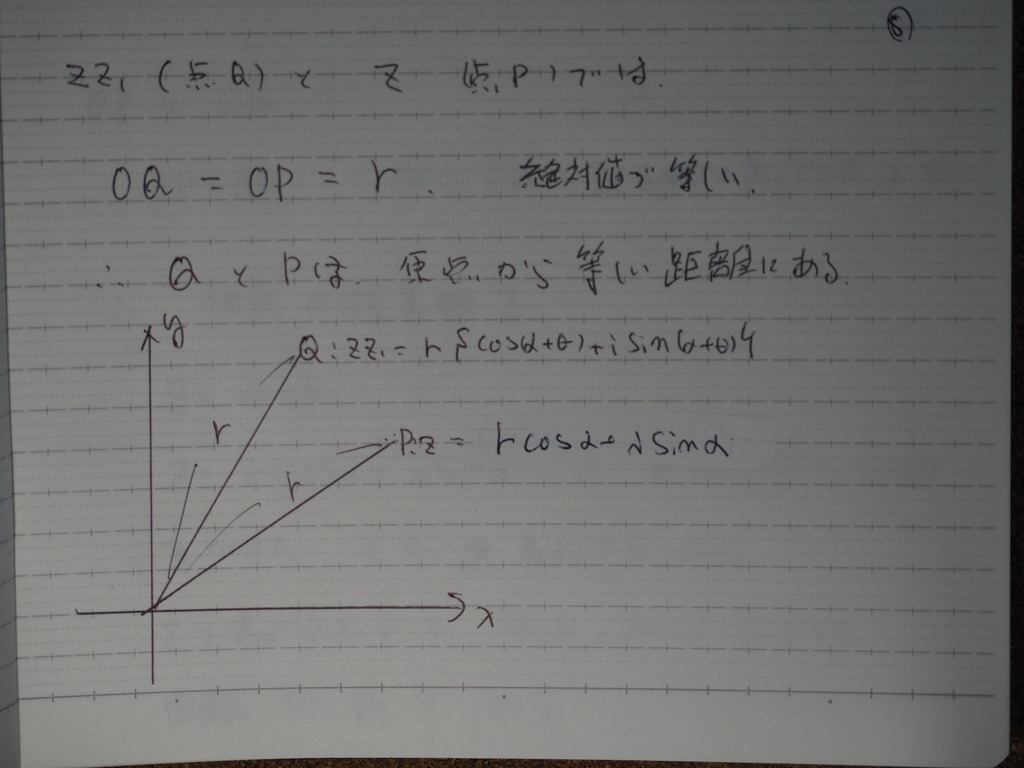 ⑥
zz₁ (点Q) と z (点P) では.
OQ = OP = r. 絶対値が等しい.
∴ QとPは. 原点から等しい距離にある.
y
Q: zz₁ = r{cos(α+θ)+i sin(α+θ)}
r
P: z = r cosα+i sinα
r
x